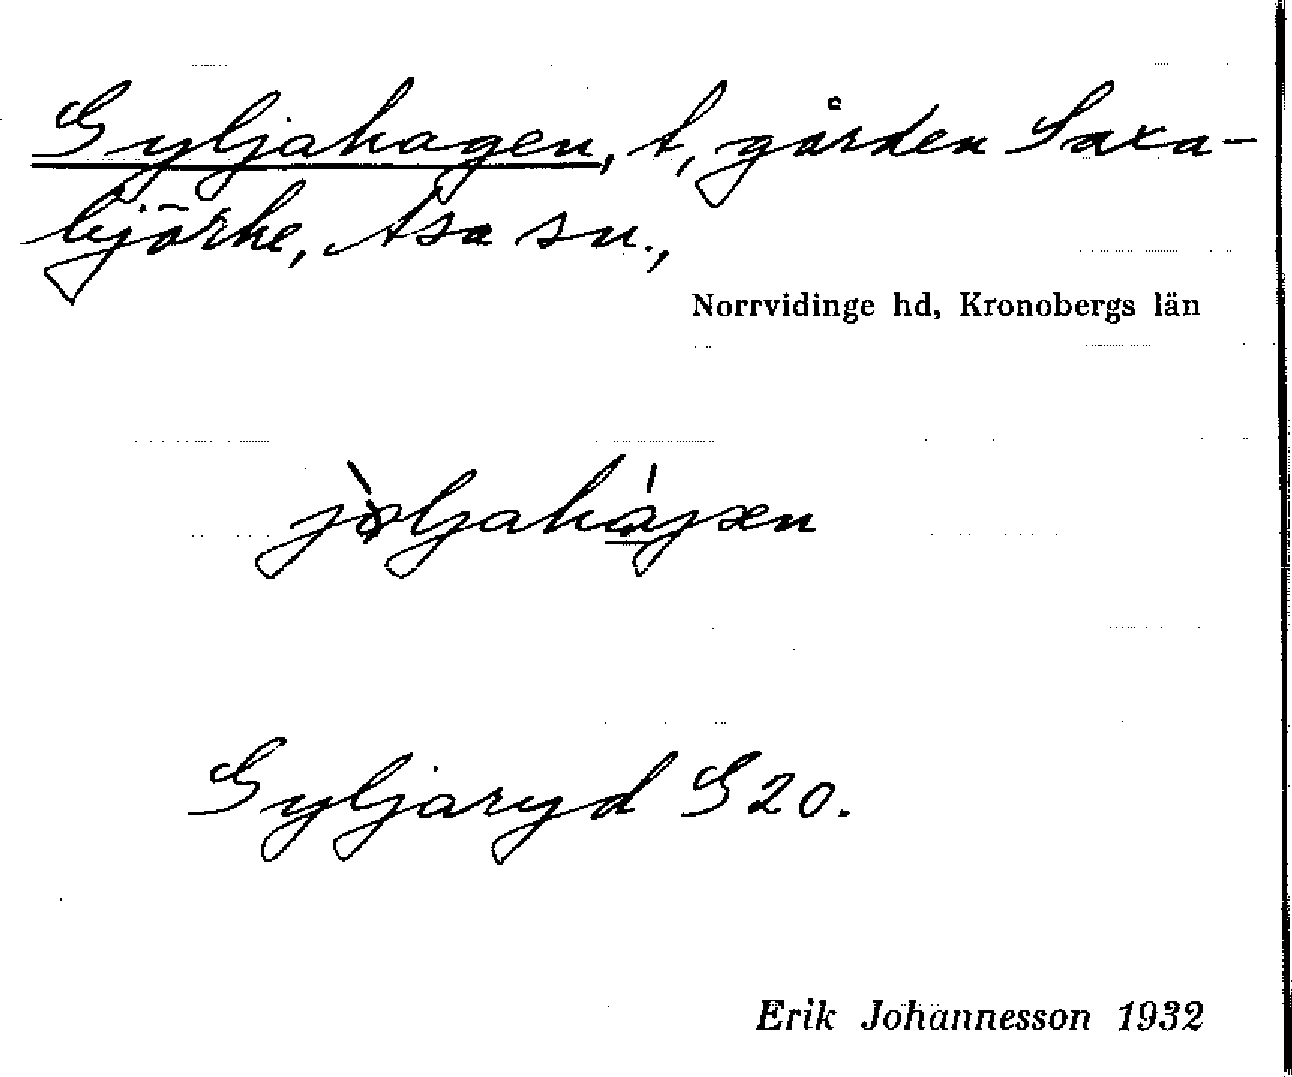 Gyljahagen, t, gården Saxa-
björke, Asa sn.,
Norrvidinge hd, Kronobergs län
Gyljaryd G 20.
Erik Johannesson 1932